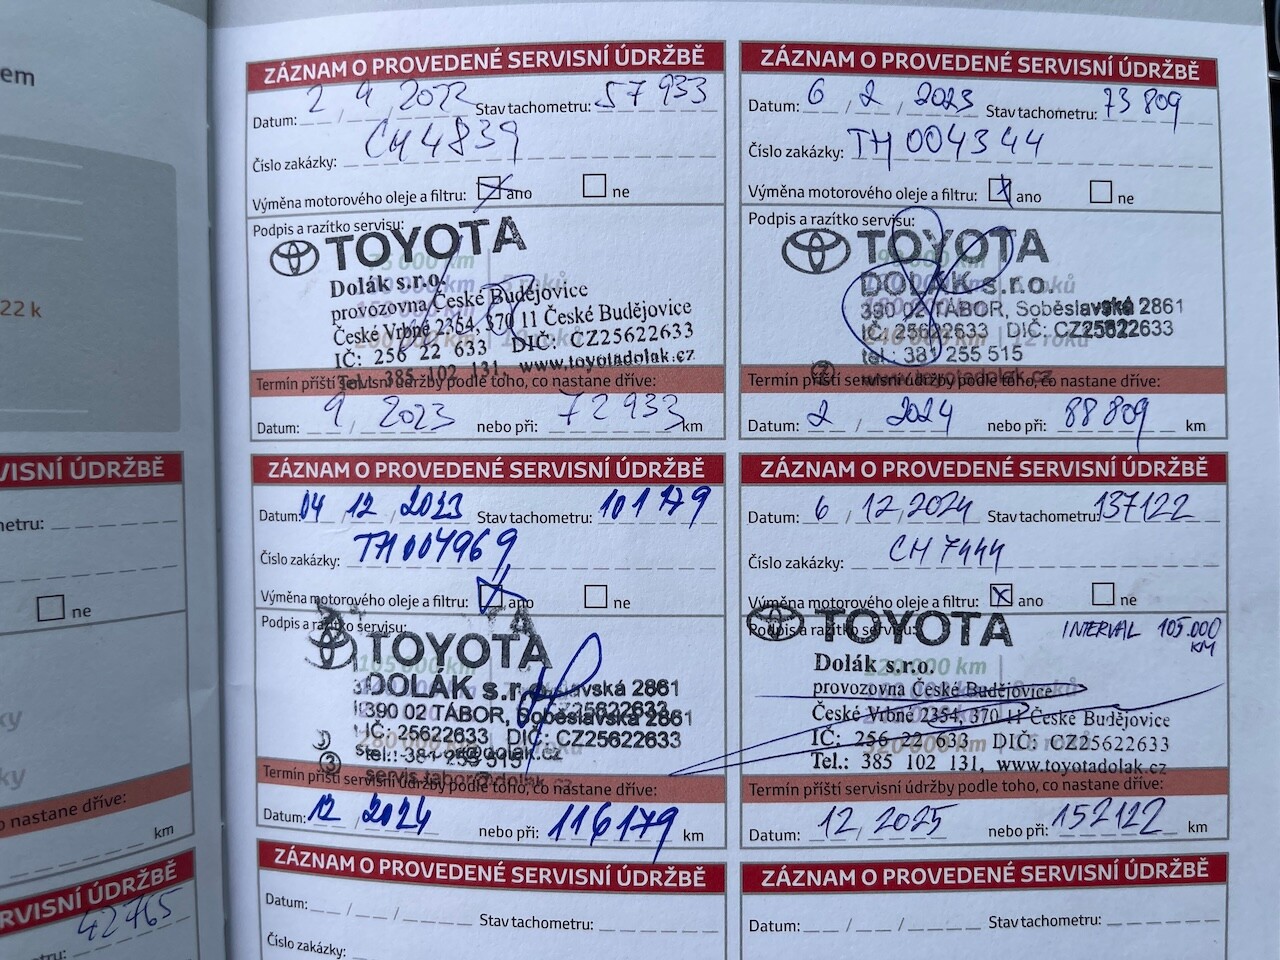 em
22 k
VISNÍ ÚDRŽBĚ
ne
nastane dříve:
km
42 765
ZÁZNAM O PROVEDENÉ SERVISNÍ ÚDRŽBĚ
Datum: 2 / 9 / 2022 Stav tachometru: 57 933
Číslo zakázky: CH 4839
Výměna motorového oleje a filtru: ano ne
Podpis a razítko servisu:
TOYOTA
Dolák s.r.o.
provozovna České Budějovice
České Vrbné 2354, 370 11 České Budějovice
IČ: 256 22 633 DIČ: CZ25622633
Tel.: 385 102 131, www.toyotadolak.cz
Termín příští servisní údržby podle toho, co nastane dříve:
Datum: 9 / 2023 nebo při: 72 933 km
ZÁZNAM O PROVEDENÉ SERVISNÍ ÚDRŽBĚ
Datum: 6 / 2 / 2023 Stav tachometru: 73 809
Číslo zakázky: TH004344
Výměna motorového oleje a filtru: ano ne
Podpis a razítko servisu:
TOYOTA
DOLÁK s.r.o.
390 02 TÁBOR, Soběslavská 2861
IČ: 25622633 DIČ: CZ25622633
tel.: 381 255 515
www.toyotadolak.cz
Termín příští servisní údržby podle toho, co nastane dříve:
Datum: 2 / 2024 nebo při: 88 809 km
ZÁZNAM O PROVEDENÉ SERVISNÍ ÚDRŽBĚ
Datum: 04 / 12 / 2023 Stav tachometru: 101 179
Číslo zakázky: TH004969
Výměna motorového oleje a filtru: ano ne
Podpis a razítko servisu:
TOYOTA
DOLÁK s.r.o.
390 02 TÁBOR, Soběslavská 2861
IČ: 25622633 DIČ: CZ25622633
Termín příští servisní údržby podle toho, co nastane dříve:
Datum: 12 / 2024 nebo při: 116179 km
ZÁZNAM O PROVEDENÉ SERVISNÍ ÚDRŽBĚ
Datum: 6 / 12 / 2024 Stav tachometru: 137122
Číslo zakázky: CH 7444
Výměna motorového oleje a filtru: ano ne
Podpis a razítko servisu:
TOYOTA
INTERVAL 105.000 KM
Dolák s.r.o.
provozovna České Budějovice
České Vrbné 2354, 370 11 České Budějovice
IČ: 256 22 633 DIČ: CZ25622633
Tel.: 385 102 131, www.toyotadolak.cz
Termín příští servisní údržby podle toho, co nastane dříve:
Datum: 12 / 2025 nebo při: 152122 km
ZÁZNAM O PROVEDENÉ SERVISNÍ ÚDRŽBĚ
Datum: / / Stav tachometru:
Číslo zakázky:
ZÁZNAM O PROVEDENÉ SERVISNÍ ÚDRŽBĚ
Datum: / / Stav tachometru:
Číslo zakázky: